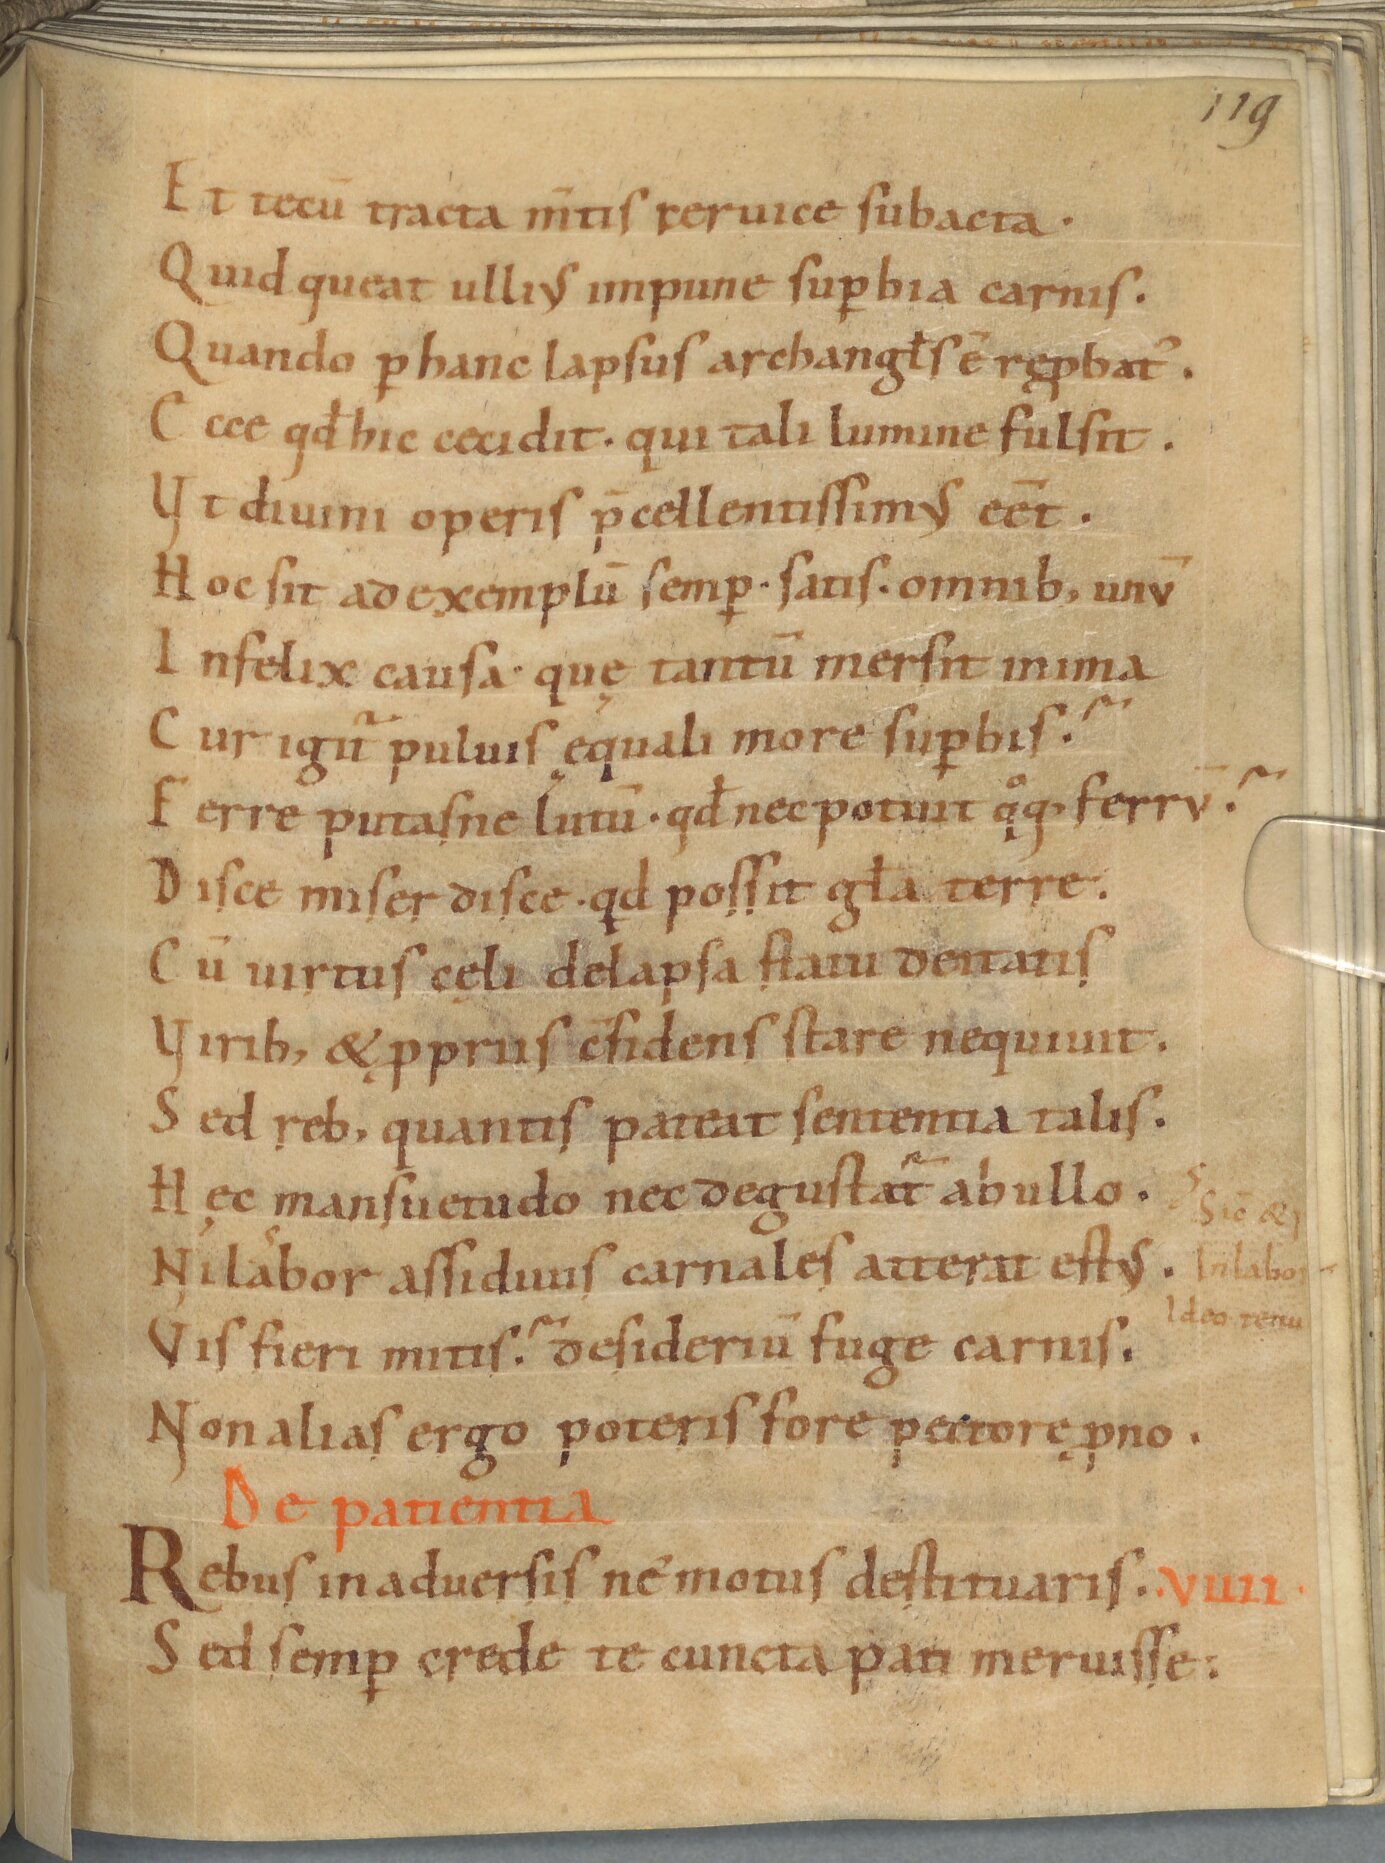 119
Et tecū tracta m̄tis ceruice subacta·
Quid queat ulliꝰ impune suꝑbia carnis.
Quando ꝑ hanc lapsus archangłs ē ręꝓbat᷒.
Ecce qđ hic cecidit· qui tali lumine fulsit.
Vt diuini operis p̄cellentissimꝰ eēt.
Hoc sit ad exemplū semꝑ· satis· omnib, unū
Infelix causa· quę tantū mersit in ima
Cur igit᷒ puluis ęquali more suꝑbis?
Ferre putasne lutū· qđ nec potuit qͦq, ferrū?
Disce miser disce· qd possit gła terrę.
Cū uirtus cęli delapsa statu deitatis
Virib, & ꝓpriis c̄fidens stare nequiuit.
Sed reb, quantis pateat sententia talis.
Hęc mansuetudo nec degustat᷒ ab ullo.
Ni labor assiduus carnales atterat estꝰ.
Sic̄ &
In labor
Ideo tenu
Vis fieri mitis? desideriū fuge carnis.
Non alias ergo poteris fore pectorę p̱no.
De patientia
Rebus in aduersis ne motus destituaris. ·VIIII·
Sed semꝑ crede te cuncta pati meruisse: